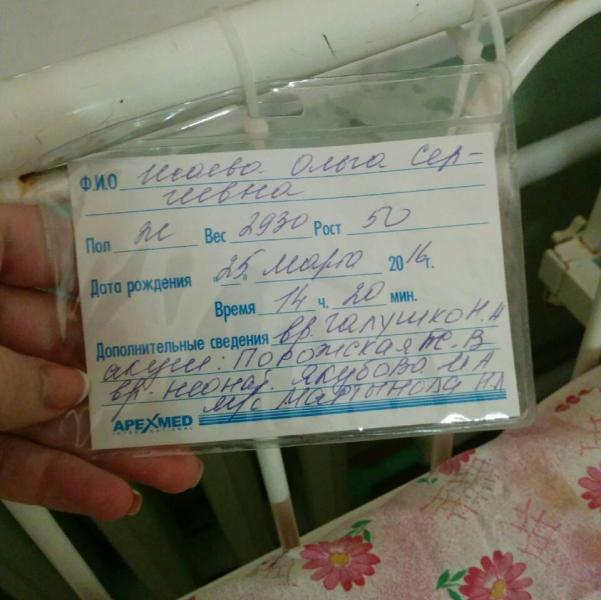 Ф.И.О Исаева Ольга Сер-
геевна
Пол Ж Вес 2930 Рост 50
Дата рождения 25 марта 2016 г.
Время 14 ч. 20 мин.
Дополнительные сведения вр Галушко Н.А
акуш: Порожская Ж.В
вр. неонат. Якубова М А
м/с Мартынова Н.А
APEXMED
INTERNATIONAL